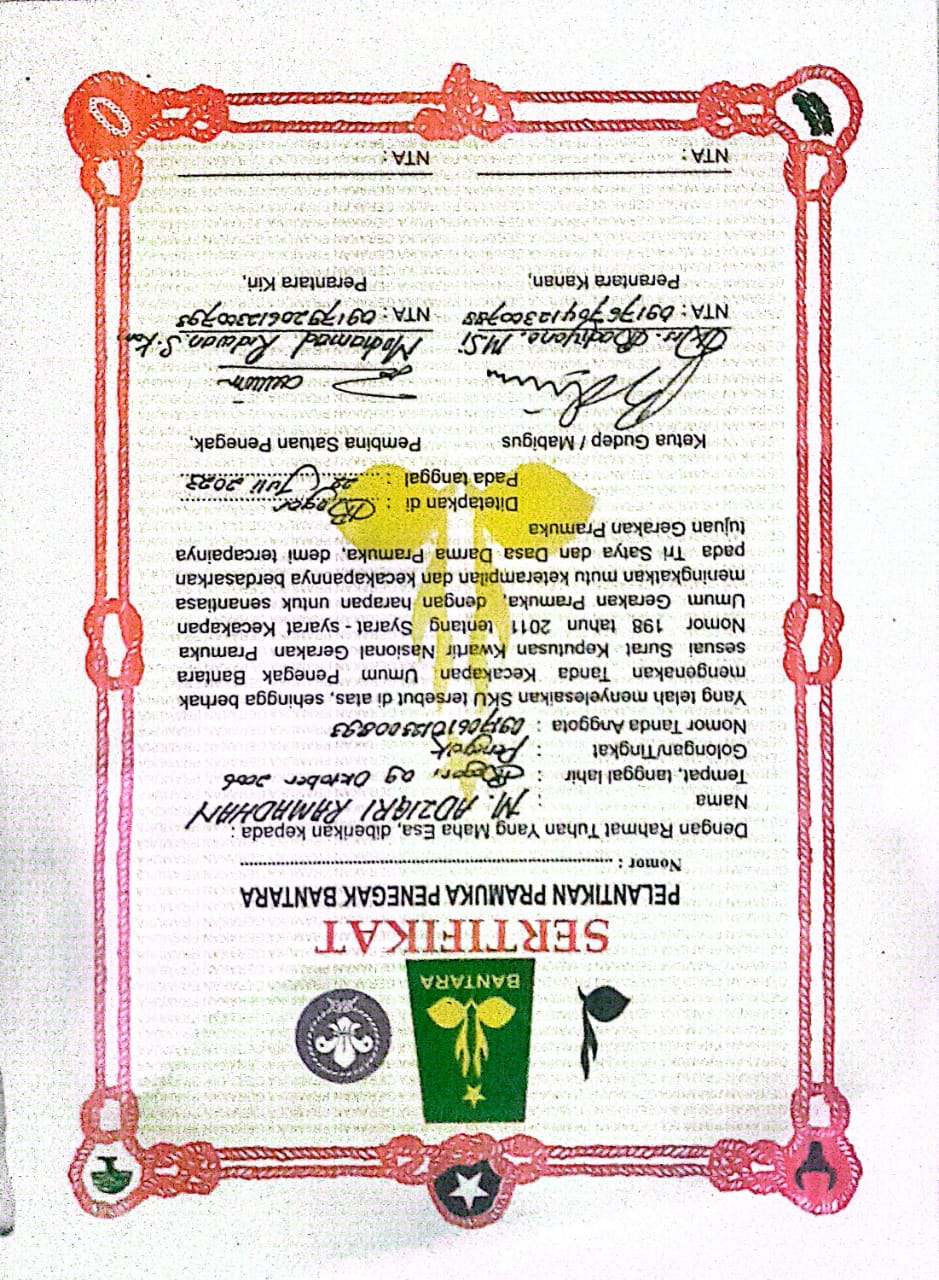 BANTARA
SERTIFIKAT
PELANTIKAN PRAMUKA PENEGAK BANTARA
Nomor : ........................................
Dengan Rahmat Tuhan Yang Maha Esa, diberikan kepada :
Nama : M. ADZIQRI RAMADHAN
Tempat, tanggal lahir : Bogor, 29 Oktober 2006
Golongan/Tingkat : Penegak
Nomor Tanda Anggota :
Yang telah menyelesaikan SKU tersebut di atas, sehingga berhak
mengenakan Tanda Kecakapan Umum Penegak Bantara
sesuai Surat Keputusan Kwartir Nasional Gerakan Pramuka
Nomor 198 tahun 2011 tentang Syarat - syarat Kecakapan
Umum Gerakan Pramuka, dengan harapan untuk senantiasa
meningkatkan mutu keterampilan dan kecakapannya berdasarkan
pada Tri Satya dan Dasa Darma Pramuka, demi tercapainya
tujuan Gerakan Pramuka
Ditetapkan di : Bogor
Pada tanggal : Juli 2023
Ketua Gudep / Mabigus Pembina Satuan Penegak,
M.Si Mohamad Ridwan. S.Kom
NTA : NTA :
Perantara Kanan, Perantara Kiri,
NTA : NTA :